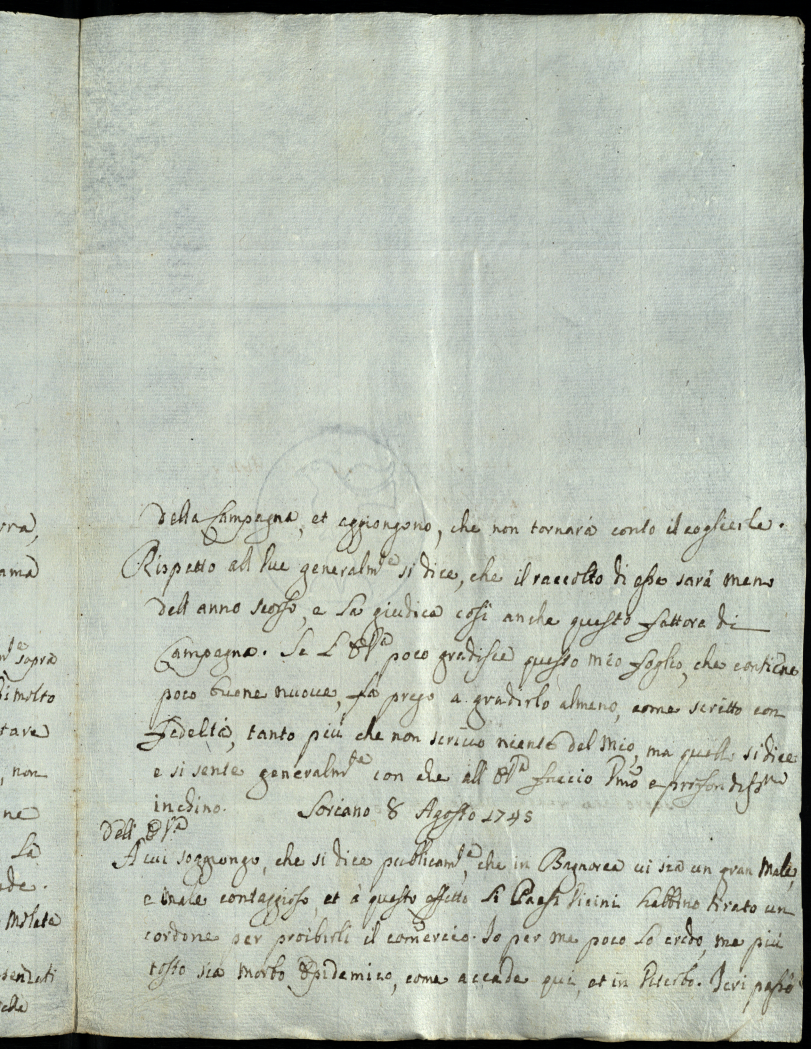 rra,
ama
m.te sopra
di molto
tare
, non
ne
La
ade.
molete
penzati
della Campagna, et aggiongono, che non tornarà conto il coglierle.
Rispetto all Uve generalm.te si dice, che il raccolto di esse sarà meno
dell anno scorso, e la giudica così anche questo fattore di
Campagna. Se L' E.V.ra poco gradisce questo mio foglio, che contiene
poco buone nuove, la prego a gradirlo almeno, come scritto con
Fedeltà, tanto più che non scrivo niente del mio, ma quello si dice
e si sente generalm.te con che all' E.V.ra faccio Umo e profondiss.mo
inchino. Soriano 8 Agosto 1745
Dell' E.V.ra
A cui soggiongo, che si dice publicam.te, che in Bagnorea vi sia un gran male,
e male contaggioso, et à questo effetto li Paesi Vicini habbino tirato un
cordone per proibirli il comercio. Io per me poco lo credo, ma più
tosto sia morbo Epidemico, come accade quì, et in Viterbo. Jeri passò